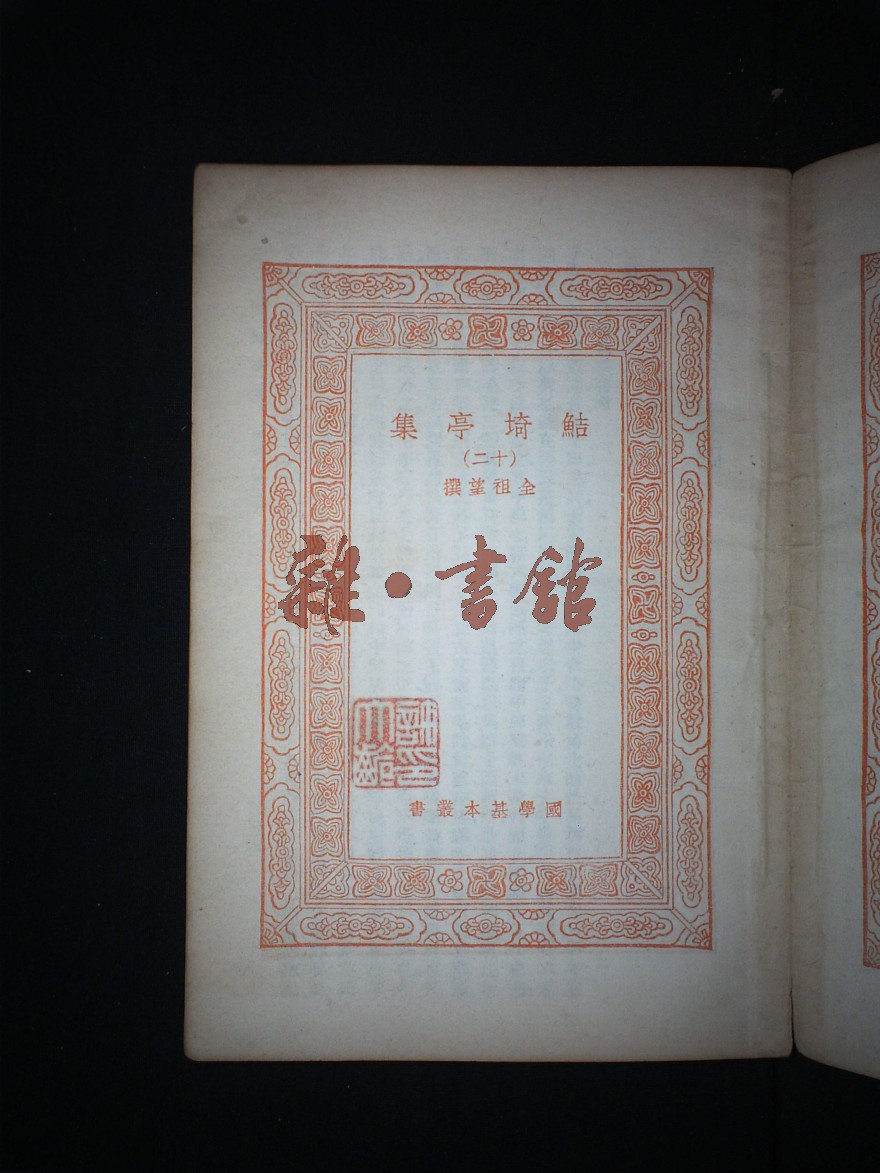 鮚埼亭集
(十二)
全祖望撰
雜·書館
國學基本叢書